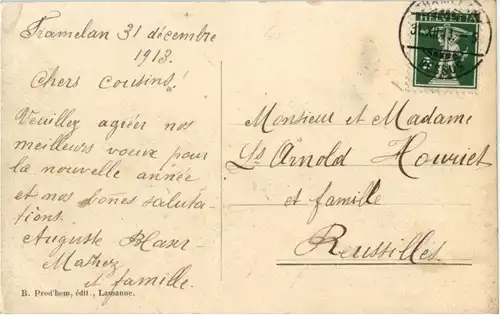 Tramelan 31 décembre
1913.
Chers cousins!
Veuillez agréer nos
meilleurs voeux pour
la nouvelle année
et nos bônes saluta-
tions.
Auguste
Mathez
et famille.
B. Prod'hom, édit., Lausanne.
TRAMELAN
HELVETIA
Monsieur et Madame
Ls Arnold Houriet
et famille
Reussilles.